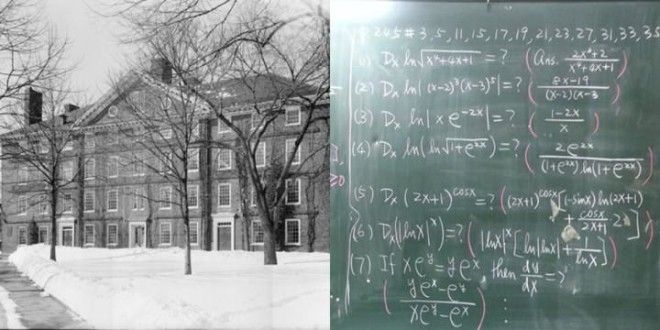 245 # 3, 5, 11, 15, 17, 19, 21, 23, 27, 31, 33, 35
(1) Dx ln√(x⁴+4x+1) = ? (Ans. (2x³+2)/(x⁴+4x+1))
(2) Dx ln|(x-2)³(x-3)⁵| = ? ((8x-19)/((x-2)(x-3)
(3) Dx ln|x e^(-2x)| = ? ((1-2x)/x)
(4) Dx ln(ln√(1+e^(2x))) = ? (2e^(2x)/((1+e^(2x)) ln(1+e^(2x))))
(5) Dx (2x+1)^(cosx) = ? ((2x+1)^(cosx) [(-sinx) ln(2x+1) + (cosx/(2x+1)) 2])
(6) Dx(|lnx|^x) = ? (|lnx|^x [ln|lnx| + 1/lnx])
(7) If xe^y = ye^x, then dy/dx = ?
((ye^x - e^y)/(xe^y - e^x))